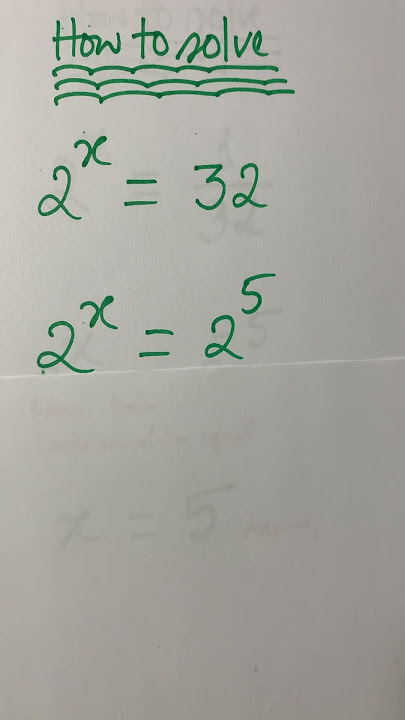 How to solve
2^x = 32
2^x = 2^5
x = 5